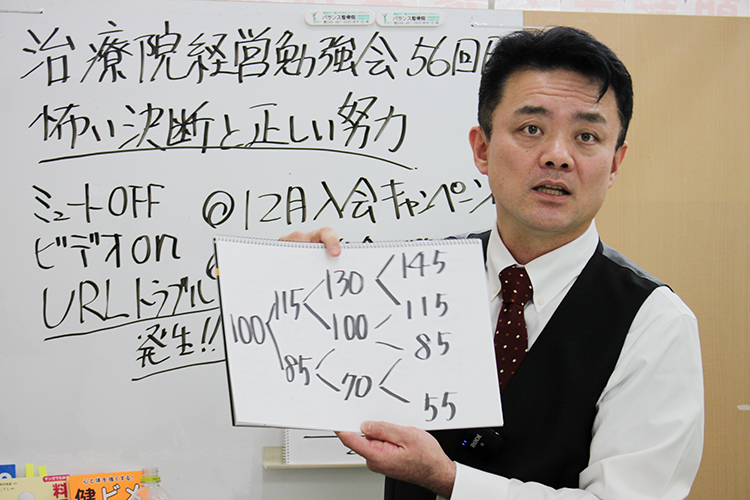 バランス整骨院 バランス整骨院
治療院経営勉強会56回
怖い決断と正しい努力
ミュートOFF @12月入会キャンペーン
ビデオon
URLトラブル
発生!!
145
130
115 115
100 100
85 85
70
55
心と体を強くする!
健ビ